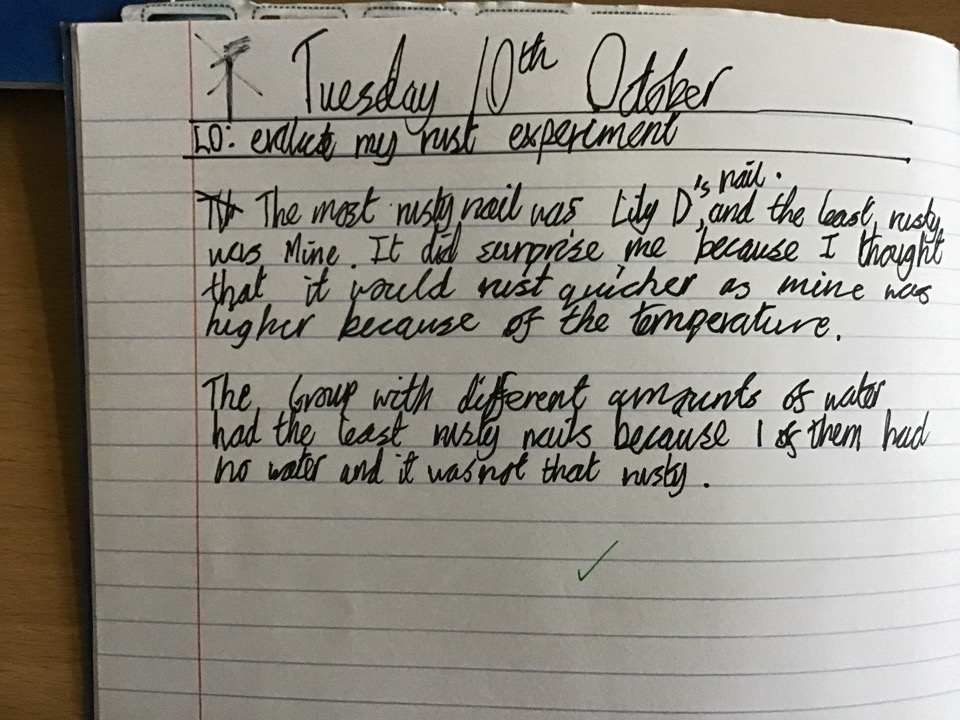 Tuesday 10th October
LO: evaluate my rust experiment
The most rusty nail was Lily D's nail. and the least rusty
was Mine. It did surprise me because I thought
that it would rust quicher as mine was
higher because of the temperature.
The Group with different amounts of water
had the least rusty nails because 1 of them had
no water and it was not that rusty.